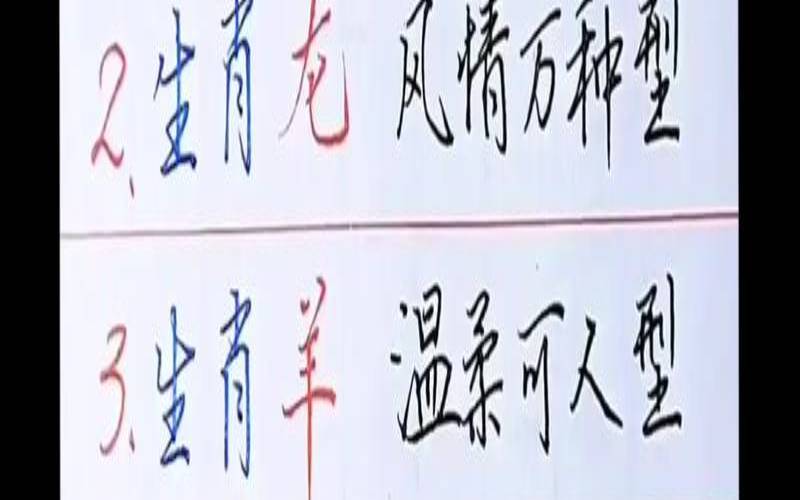 2、生肖龙 风情万种型
3、生肖羊 温柔可人型